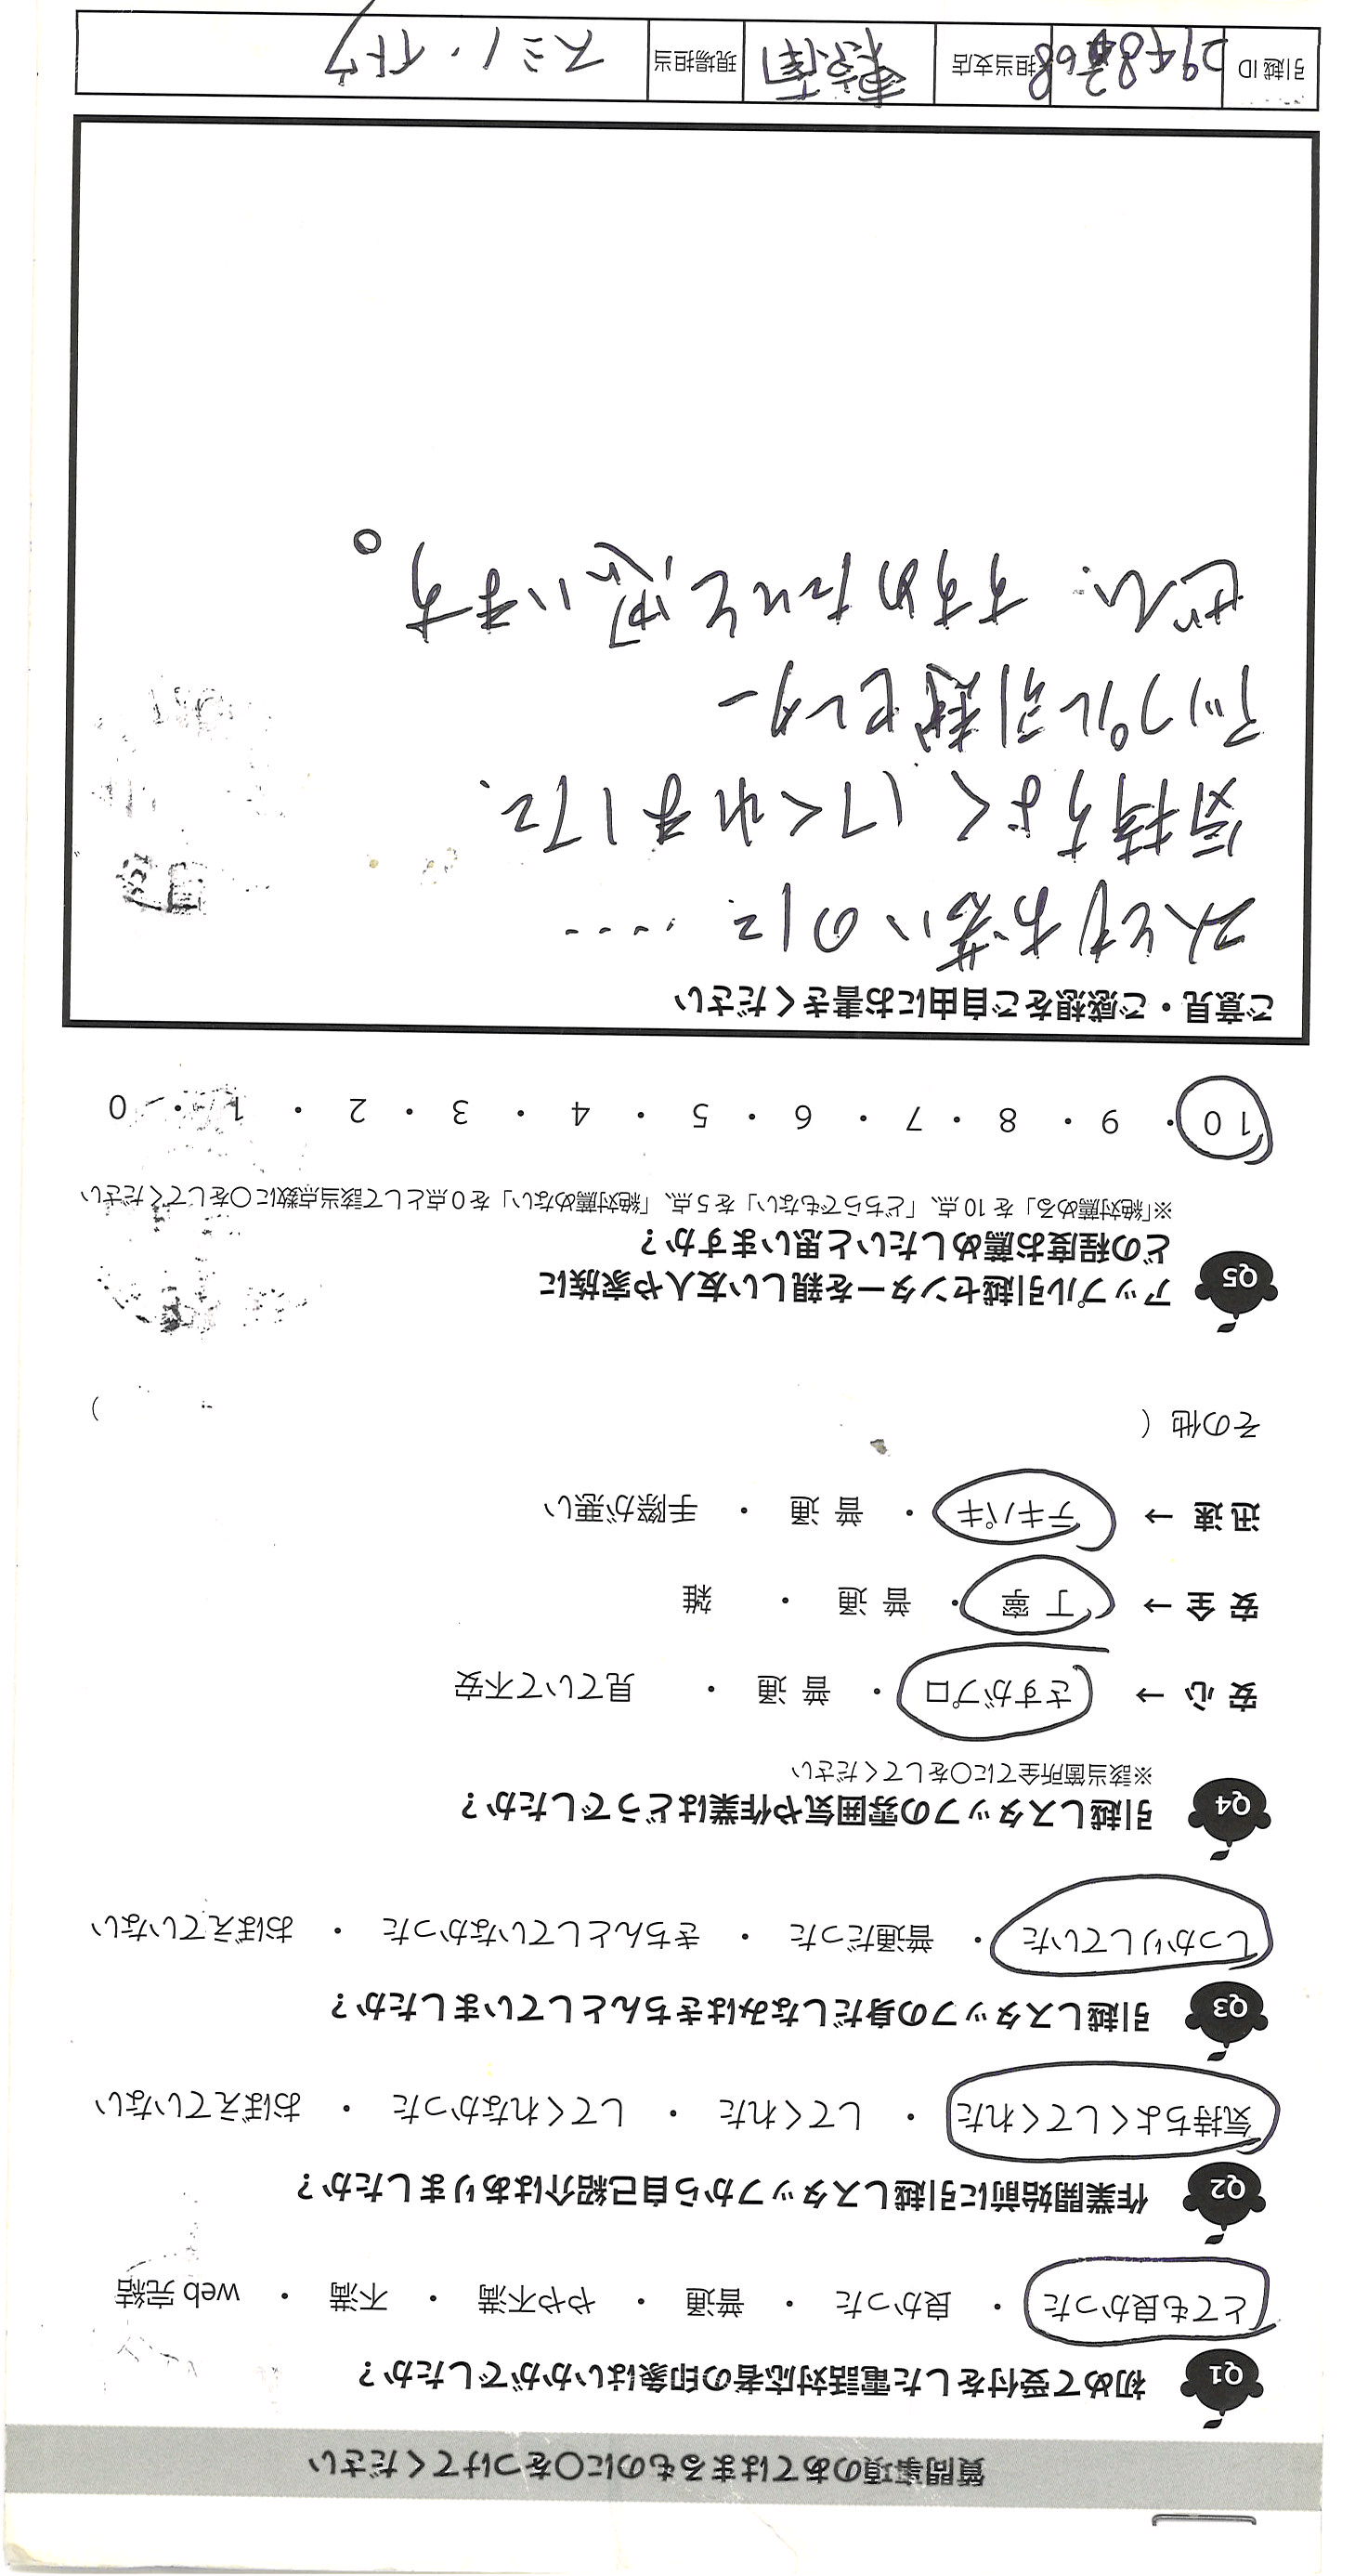 質問事項のあてはまるものに○をつけてください
Q1 初めて受付をした電話対応者の印象はいかがでしたか？
とても良かった ・ 良かった ・ 普通 ・ やや不満 ・ 不満 ・ web 完結
Q2 作業開始前に引越しスタッフから自己紹介はありましたか？
気持ちよくしてくれた ・ してくれた ・ してくれなかった ・ おぼえていない
Q3 引越しスタッフの身だしなみはきちんとしていましたか？
しっかりしていた ・ 普通だった ・ きちんとしていなかった ・ おぼえていない
Q4 引越しスタッフの雰囲気や作業はどうでしたか？
※該当箇所全てに○をしてください
安 心 → さすがプロ ・ 普 通 ・ 見ていて不安
安 全 → 丁 寧 ・ 普 通 ・ 雑
迅 速 → テキパキ ・ 普 通 ・ 手際が悪い
その他（ ）
Q5 アップル引越センターを親しい友人や家族に
どの程度お薦めしたいと思いますか？
※「絶対薦める」を 10 点、「どちらでもない」を 5 点、「絶対薦めない」を 0 点として該当点数に○をしてください
10 ・ 9 ・ 8 ・ 7 ・ 6 ・ 5 ・ 4 ・ 3 ・ 2 ・ 1 ・ 0
ご意見・ご感想をご自由にお書きください
お若いのに、…
気持ちよくしてくれまして、
アップル引越センター
ぜひ、すすめたいと思います。
引越 ID 担当支店 現場担当 スミノ・イトウ